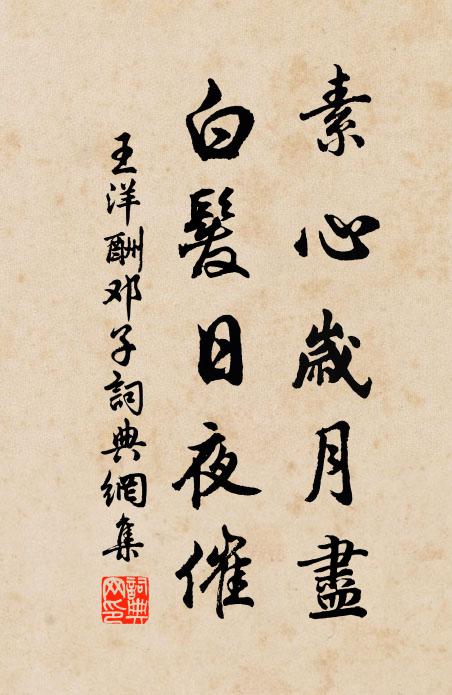 素心歲月盡
白髮日夜催
王洋酬邓子詞典網集
詞典網印